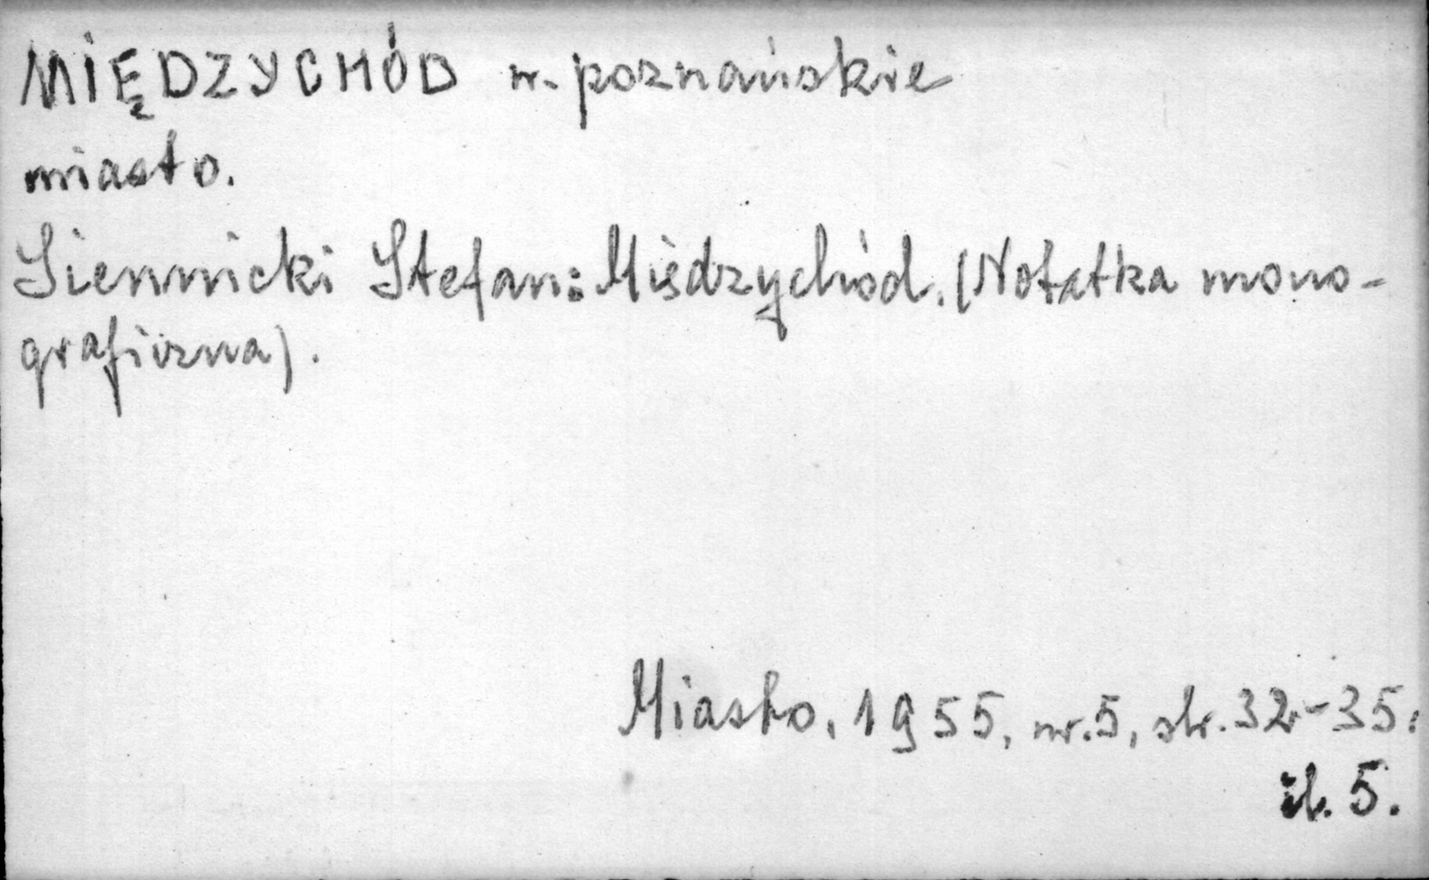 MIĘDZYCHÓD w. poznańskie
miasto.
Siennicki Stefan: Międzychód. (Notatka mono-
graficzna).
Miasto, 1955, nr. 5, str. 32-35.
il. 5.